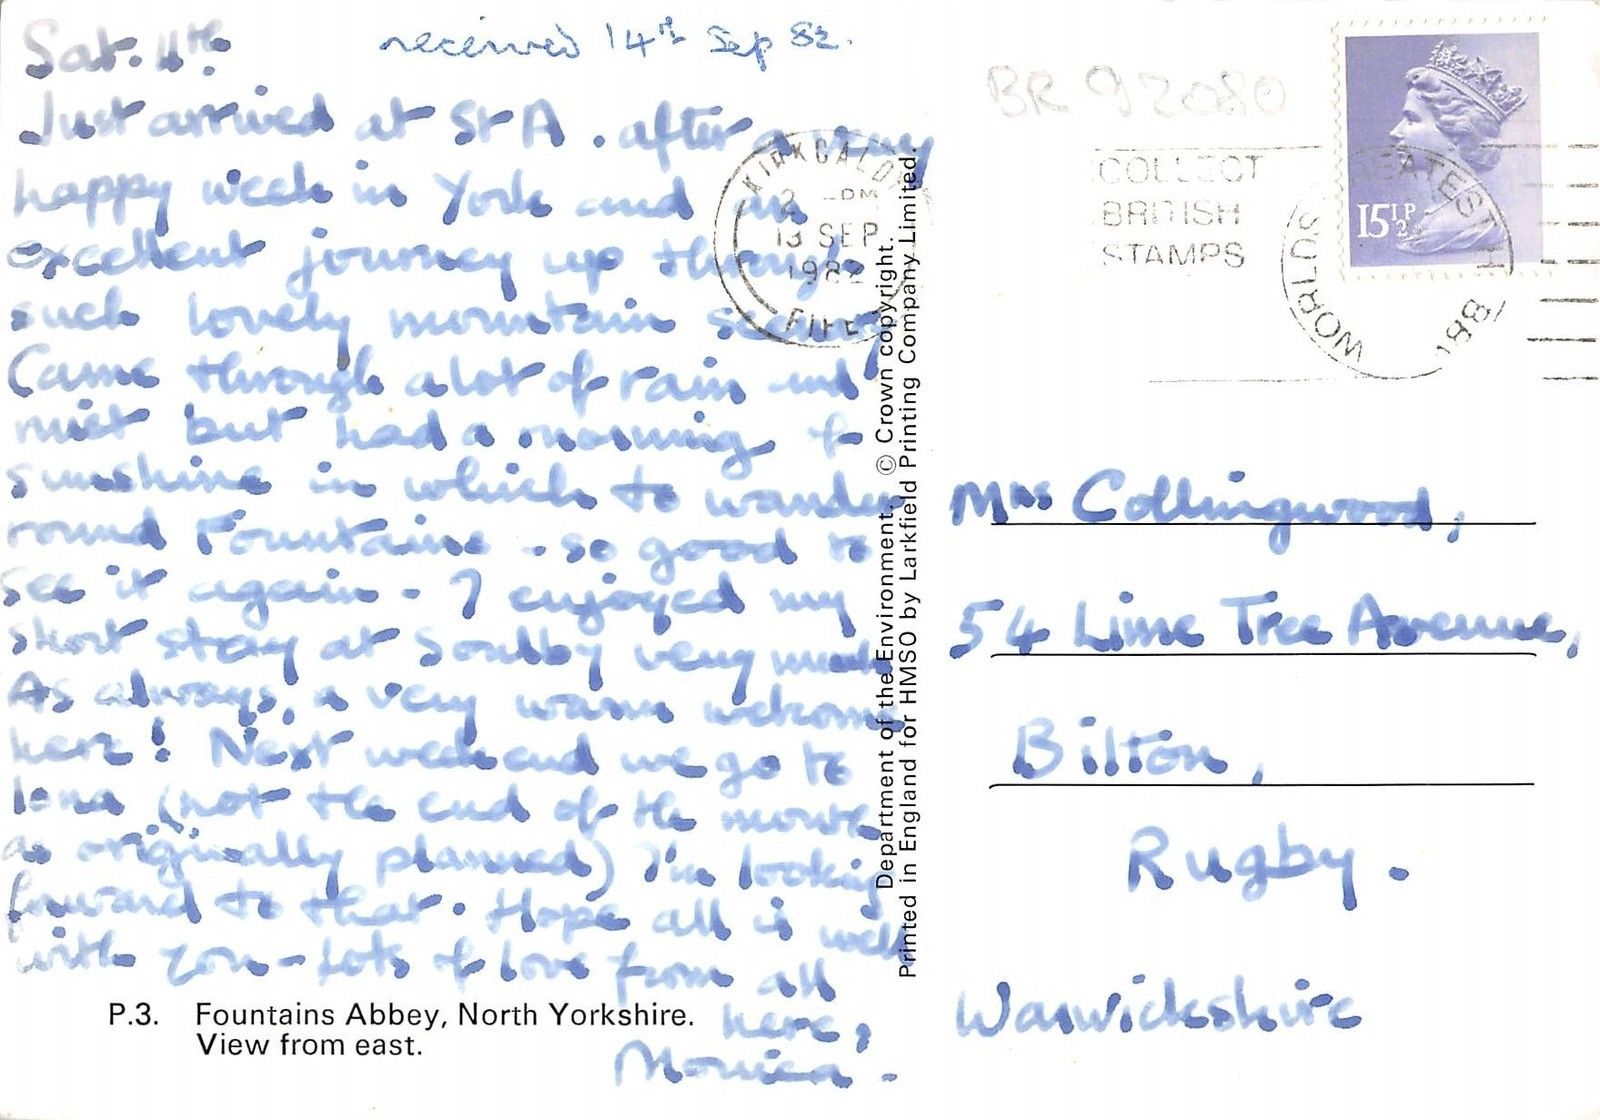 Sat. 11th.
received 14th Sep 82.
Just arrived at St A. after a very
happy week in York and an
excellent journey up through
such lovely mountain scenery
Came through a lot of rain and
mist but had a morning of
sunshine in which to wander
round Fountains - so good to
see it again - I enjoyed my
short stay at Soulby very much
As always, a very warm welcome
here! Next weekend we go to
Iona (not the end of the month
as originally planned) I'm looking
forward to that. Hope all is well
with you - Lots of love from all
here,
Monica -
P.3. Fountains Abbey, North Yorkshire.
View from east.
Department of the Environment. © Crown copyright.
Printed in England for HMSO by Larkfield Printing Company Limited.
BR 92080
KIRKCALDY
2 -PM
13 SEP
1982
FIFE
COLLECT
BRITISH
STAMPS
WORLD'S GREATEST H
15½P
Mrs Collingwood,
54 Lime Tree Avenue,
Bilton,
Rugby.
Warwickshire